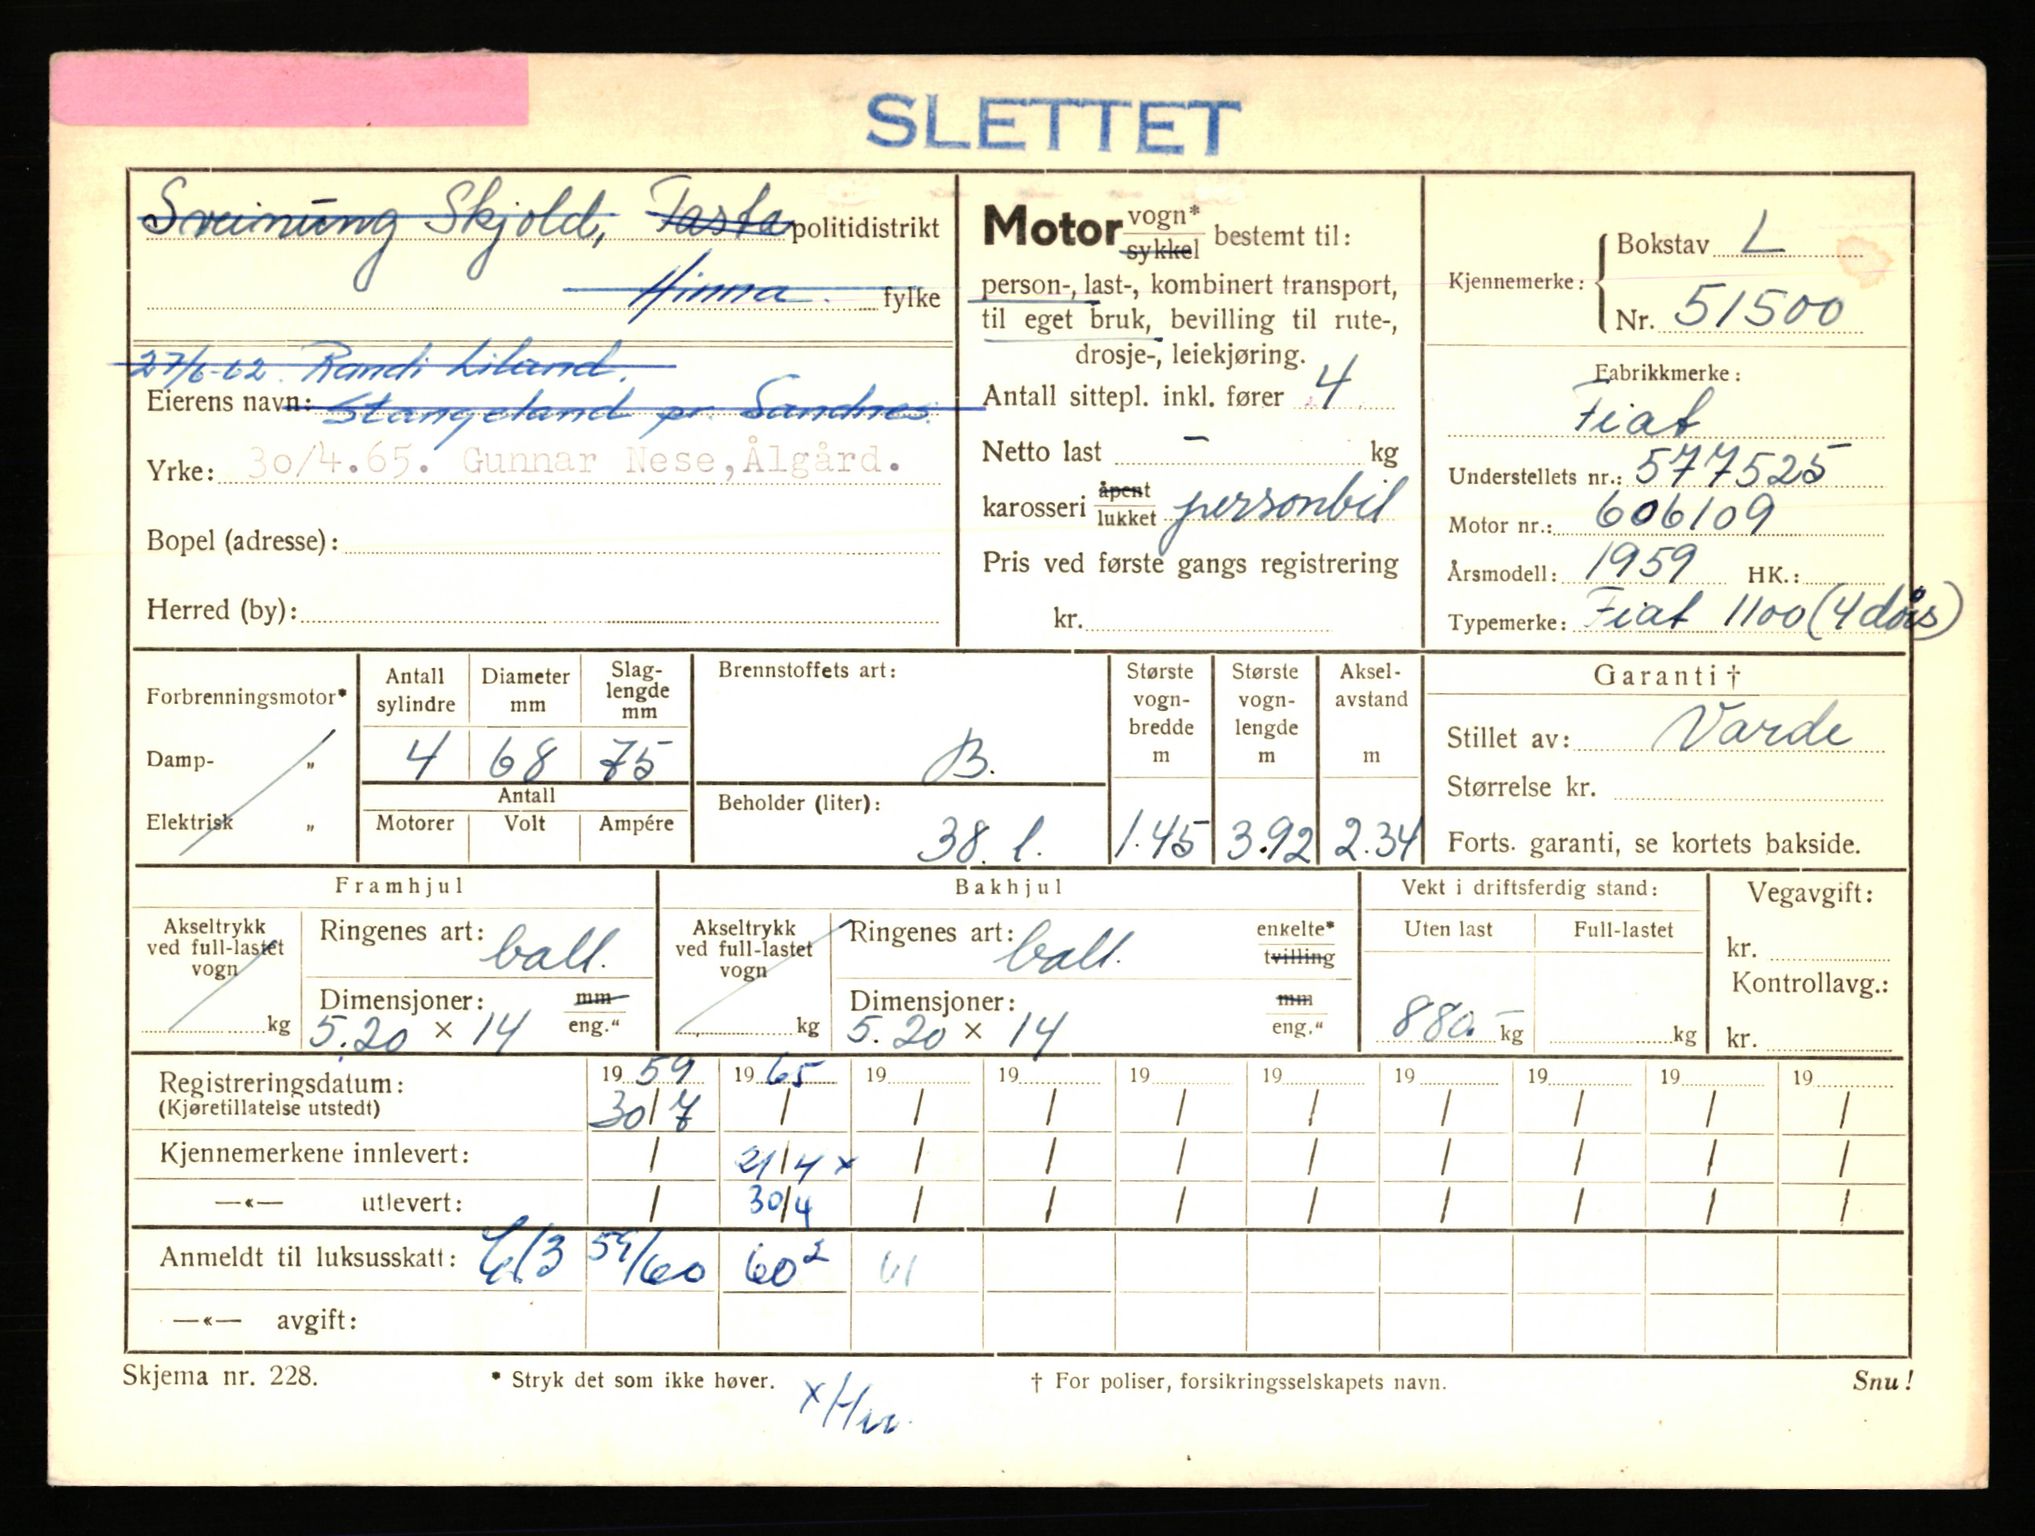 SLETTET
Sveinung Skjold, Tasta politidistrikt
Hinna. fylke
27/6-62. Randi Liland.
Eierens navn: Stangeland pr. Sandnes.
Yrke: 30/4.65. Gunnar Nese, Ålgård.
Bopel (adresse):
Herred (by):
Motor vogn* sykkel bestemt til:
person-, last-, kombinert transport,
til eget bruk, bevilling til rute-,
drosje-, leiekjøring.
Antall sittepl. inkl. fører 4
Netto last – kg
karosseri åpent lukket personbil
Pris ved første gangs registrering
kr.
Kjennemerke: Bokstav L
Nr. 51500
Fabrikkmerke:
Fiat
Understellets nr.: 577525
Motor nr.: 606109
Årsmodell: 1959 HK.:
Typemerke: Fiat 1100 (4 dørs)
Forbrenningsmotor*
Damp- „
Elektrisk „
Antall sylindre Diameter mm Slaglengde mm
4 68 75
Antall
Motorer Volt Ampére
Brennstoffets art:
B.
Beholder (liter):
38. l.
Største vognbredde m Største vognlengde m Akselavstand m
1.45 3.92 2.34
Garanti †
Stillet av: Varde
Størrelse kr.
Forts. garanti, se kortets bakside.
Framhjul
Akseltrykk ved full-lastet vogn kg
Ringenes art: ball.
Dimensjoner: mm
5.20 × 14 eng."
Bakhjul
Akseltrykk ved full-lastet vogn kg
Ringenes art: ball. enkelte* tvilling
Dimensjoner: mm
5.20 × 14 eng."
Vekt i driftsferdig stand:
Uten last Full-lastet
880.- kg kg
Vegavgift:
kr.
Kontrollavg.:
kr.
Registreringsdatum: 19 59 19 65 19 19 19 19 19 19 19 19
(Kjøretillatelse utstedt) 30/7 / / / / / / / / /
Kjennemerkene innlevert: / 21/4 x / / / / / / / /
—«— utlevert: / 30/4 / / / / / / / /
Anmeldt til luksusskatt: 59/60 60² 61
—«— avgift:
Skjema nr. 228. * Stryk det som ikke høver. † For poliser, forsikringsselskapets navn. Snu!